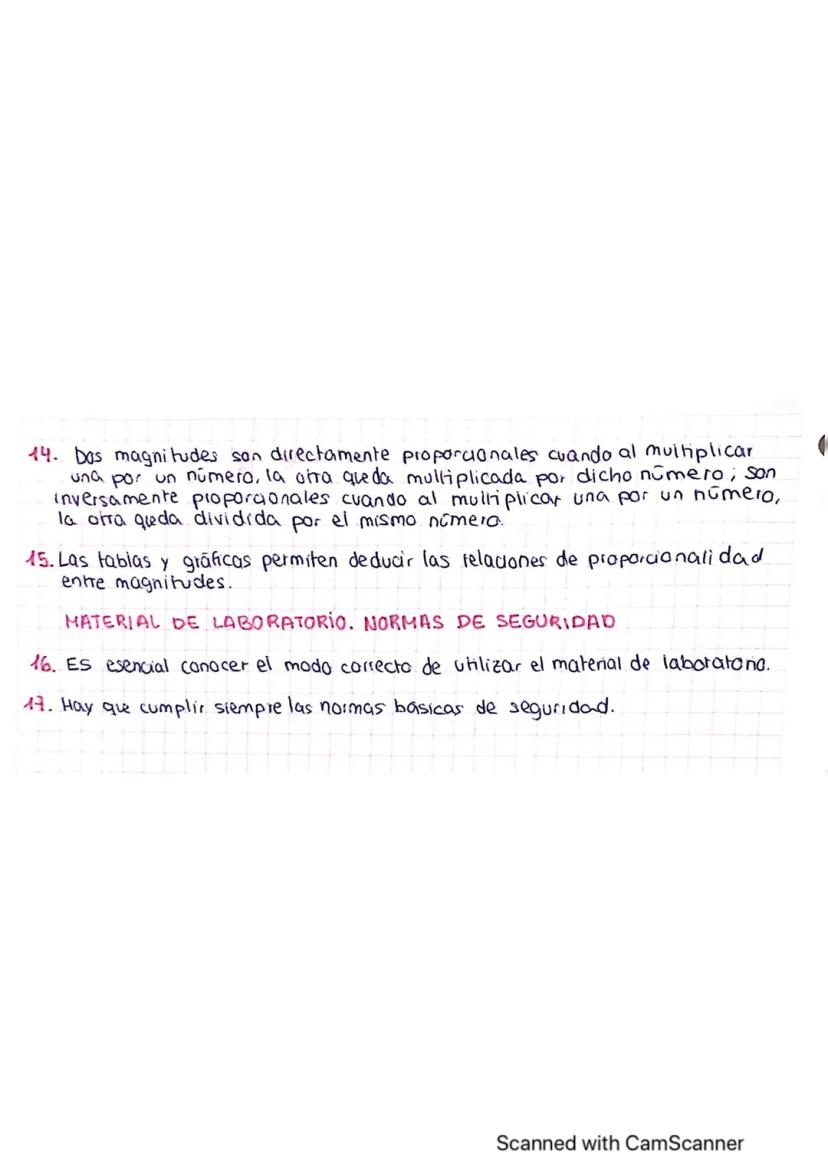 14. Dos magnitudes son directamente proporcionales cuando al multiplicar
una por un número, la otra queda multiplicada por dicho número; son
inversamente proporcionales cuando al multiplicar una por un número,
la otra queda dividida por el mismo número.
15. Las tablas y gráficas permiten deducir las relaciones de proporcionalidad
entre magnitudes.
MATERIAL DE LABORATORIO. NORMAS DE SEGURIDAD
16. Es esencial conocer el modo correcto de utilizar el material de laboratorio.
17. Hay que cumplir siempre las normas básicas de seguridad.
Scanned with CamScanner